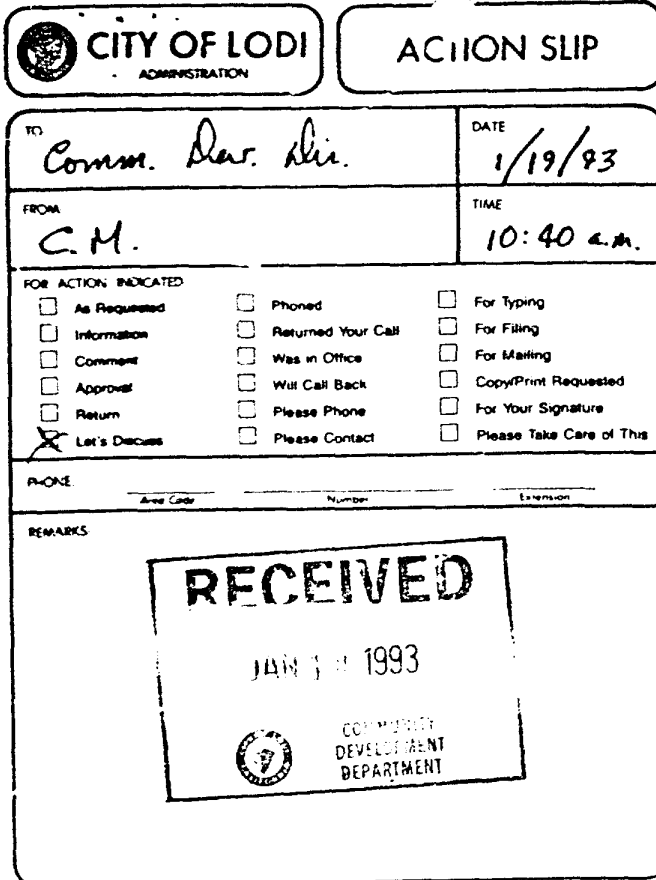 CITY OF LODI
ADMINISTRATION
ACTION SLIP
TO
Comm. Dev. Dir.
DATE
1/19/93
FROM
C.M.
TIME
10:40 a.m.
FOR ACTION INDICATED
As Requested
Information
Comment
Approval
Return
Let's Discuss
Phoned
Returned Your Call
Was in Office
Will Call Back
Please Phone
Please Contact
For Typing
For Filing
For Mailing
Copy/Print Requested
For Your Signature
Please Take Care of This
PHONE
Area Code
Number
Extension
REMARKS
RECEIVED
JAN 1 1993
COMMUNITY
DEVELOPMENT
DEPARTMENT